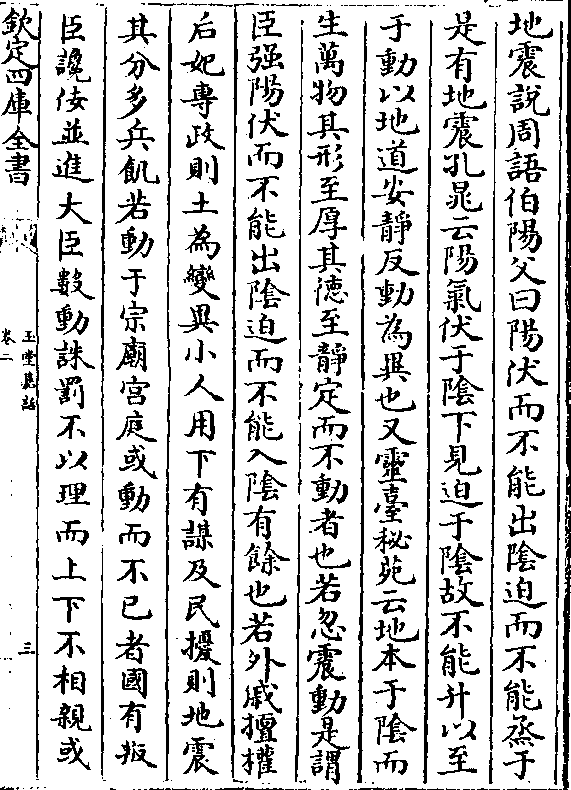 地震說周語伯陽父曰陽伏而不能出陰迫而不能蒸于
是有地震孔晁云陽氣伏于陰下見迫于陰故不能升以至
于動以地道安靜反動為異也又靈臺秘苑云地本于陰而
生萬物其形至厚其徳至靜定而不動者也若忽震動是謂
臣强陽伏而不能出陰迫而不能入陰有餘也若外戚擅權
后妃專政則土為變異小人用下有謀及民擾則地震
其分多兵飢若動于宗廟宫庭或動而不已者國有叛
臣讒佞並進大臣數動誅罰不以理而上下不相親或
欽定四庫全書
玉堂嘉話
卷二
三